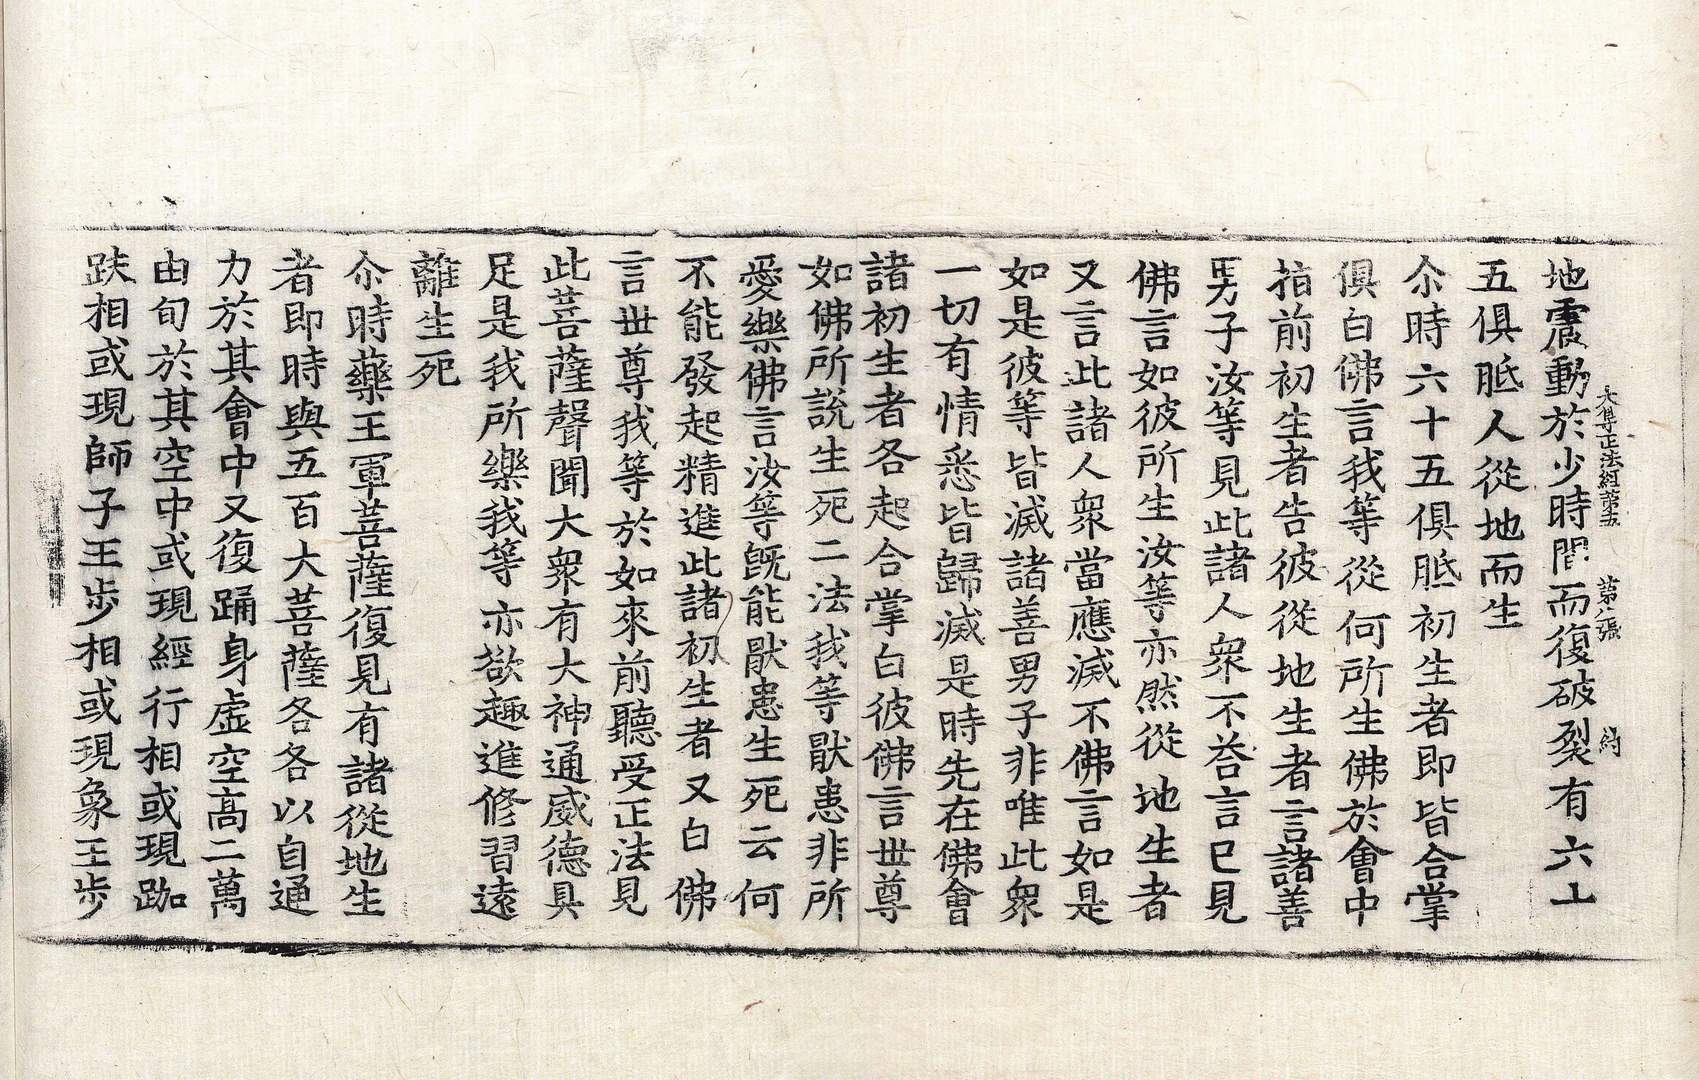 大集正法經第五 第八張 綺
地震動於少時間而復破裂有六十
五俱胝人從地而生
尒時六十五俱胝初生者即皆合掌
俱白佛言我等從何所生佛於會中
指前初生者告彼從地生者言諸善
男子汝等見此諸人衆不荅言已見
佛言如彼所生汝等亦然從地生者
又言此諸人衆當應滅不佛言如是
如是彼等皆滅諸善男子非唯此衆
一切有情悉皆歸滅是時先在佛會
諸初生者各起合掌白彼佛言世尊
如佛所說生死二法我等猒患非所
愛樂佛言汝等旣能猒患生死云何
不能發起精進此諸初生者又白佛
言世尊我等於如來前聽受正法見
此菩薩聲聞大衆有大神通威德具
足是我所樂我等亦欲趣進修習遠
離生死
尒時藥王軍菩薩復見有諸從地生
者即時與五百大菩薩各各以自通
力於其會中又復踊身虛空高二萬
由旬於其空中或現經行相或現跏
趺相或現師子王步相或現象王步